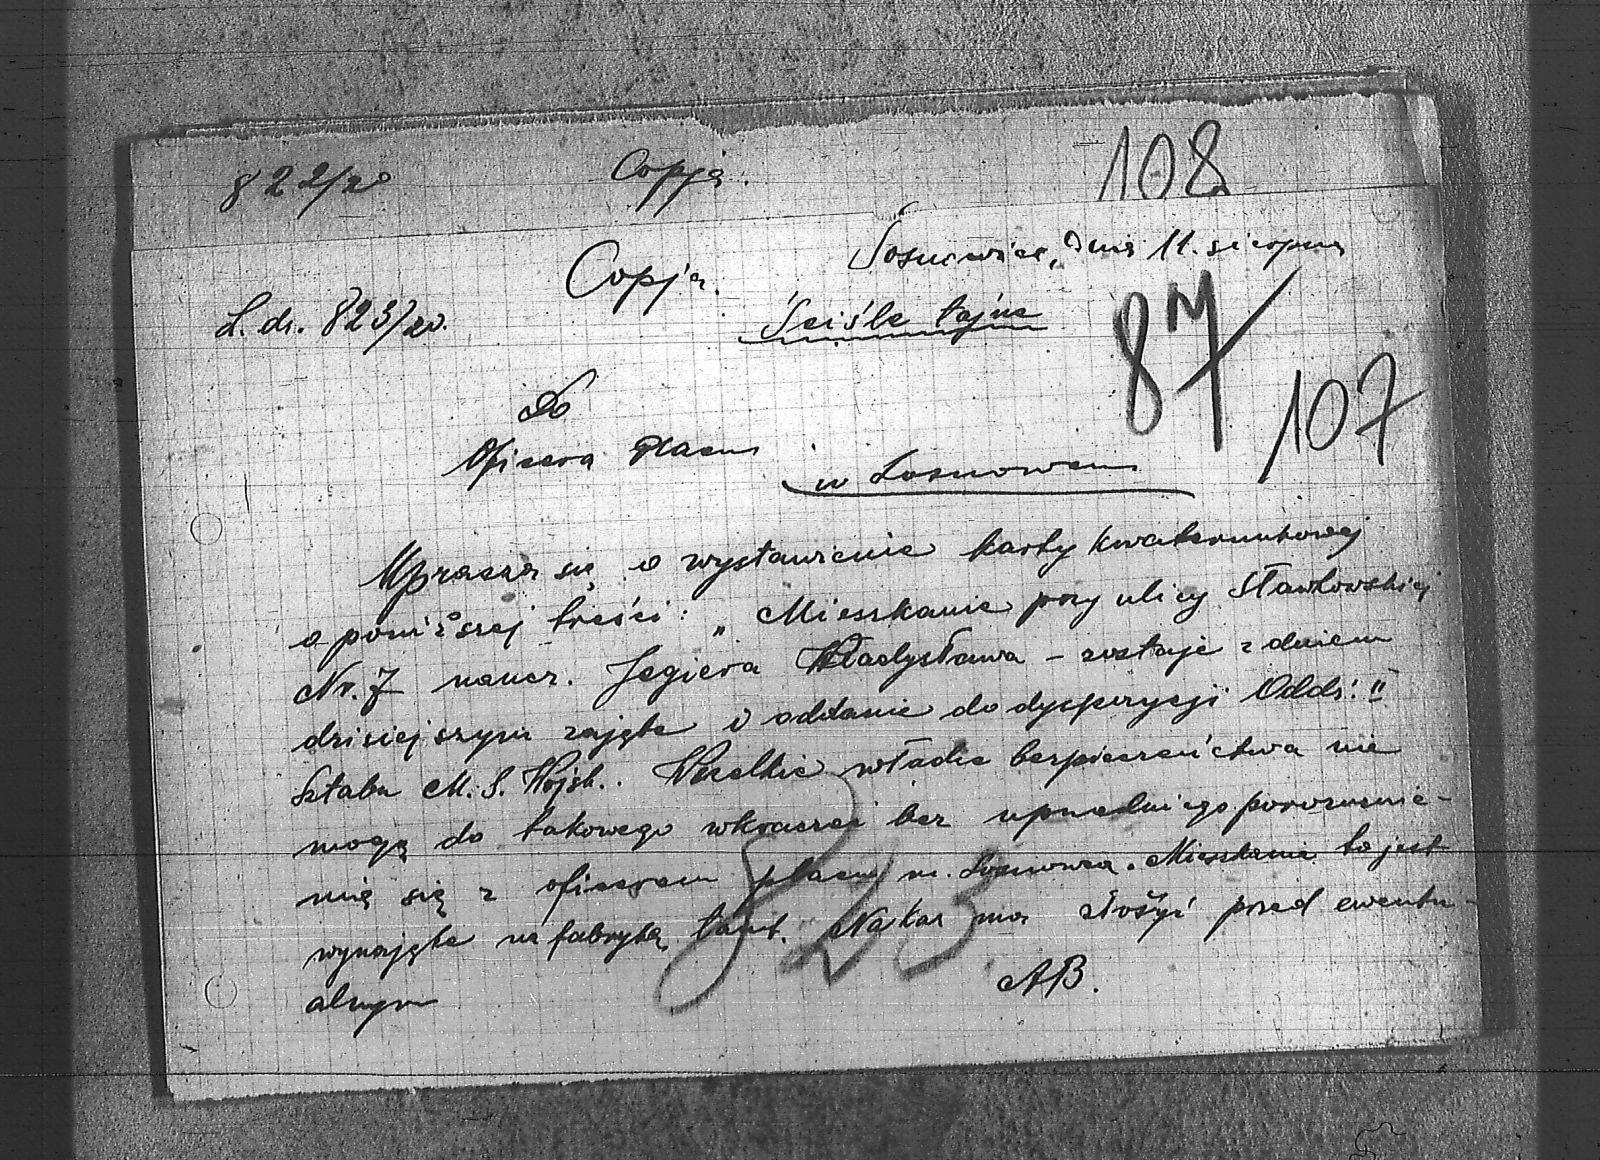 822/20 Copja. 108
Sosnowice, dnia 11. sierpnia
Copja.
L. dz. 823/20. Ściśle tajne
87
107
Do
Oficera Placu
w Sosnowcu
Uprasza się o wystawienie karty kwaterunkowej
o poniższej treści: „Mieszkanie przy ulicy Sławkowskiej
Nr. 7 naucz. Jegiera Władysława – zostaje z dniem
dzisiejszym zajęte i oddane do dyspozycji Oddz. II
Sztabu M. S. Wojsk. Wszelkie władze bezpieczeństwa nie
mogą do takowego wkraczać bez uprzedniego porozumie-
nia się z oficerem placu m. Sosnowca. Mieszkanie to jest
wynajęte na fabrykę, tamt. Nakaz ma złożyć przed ewentu-
alnym
AB.
823.